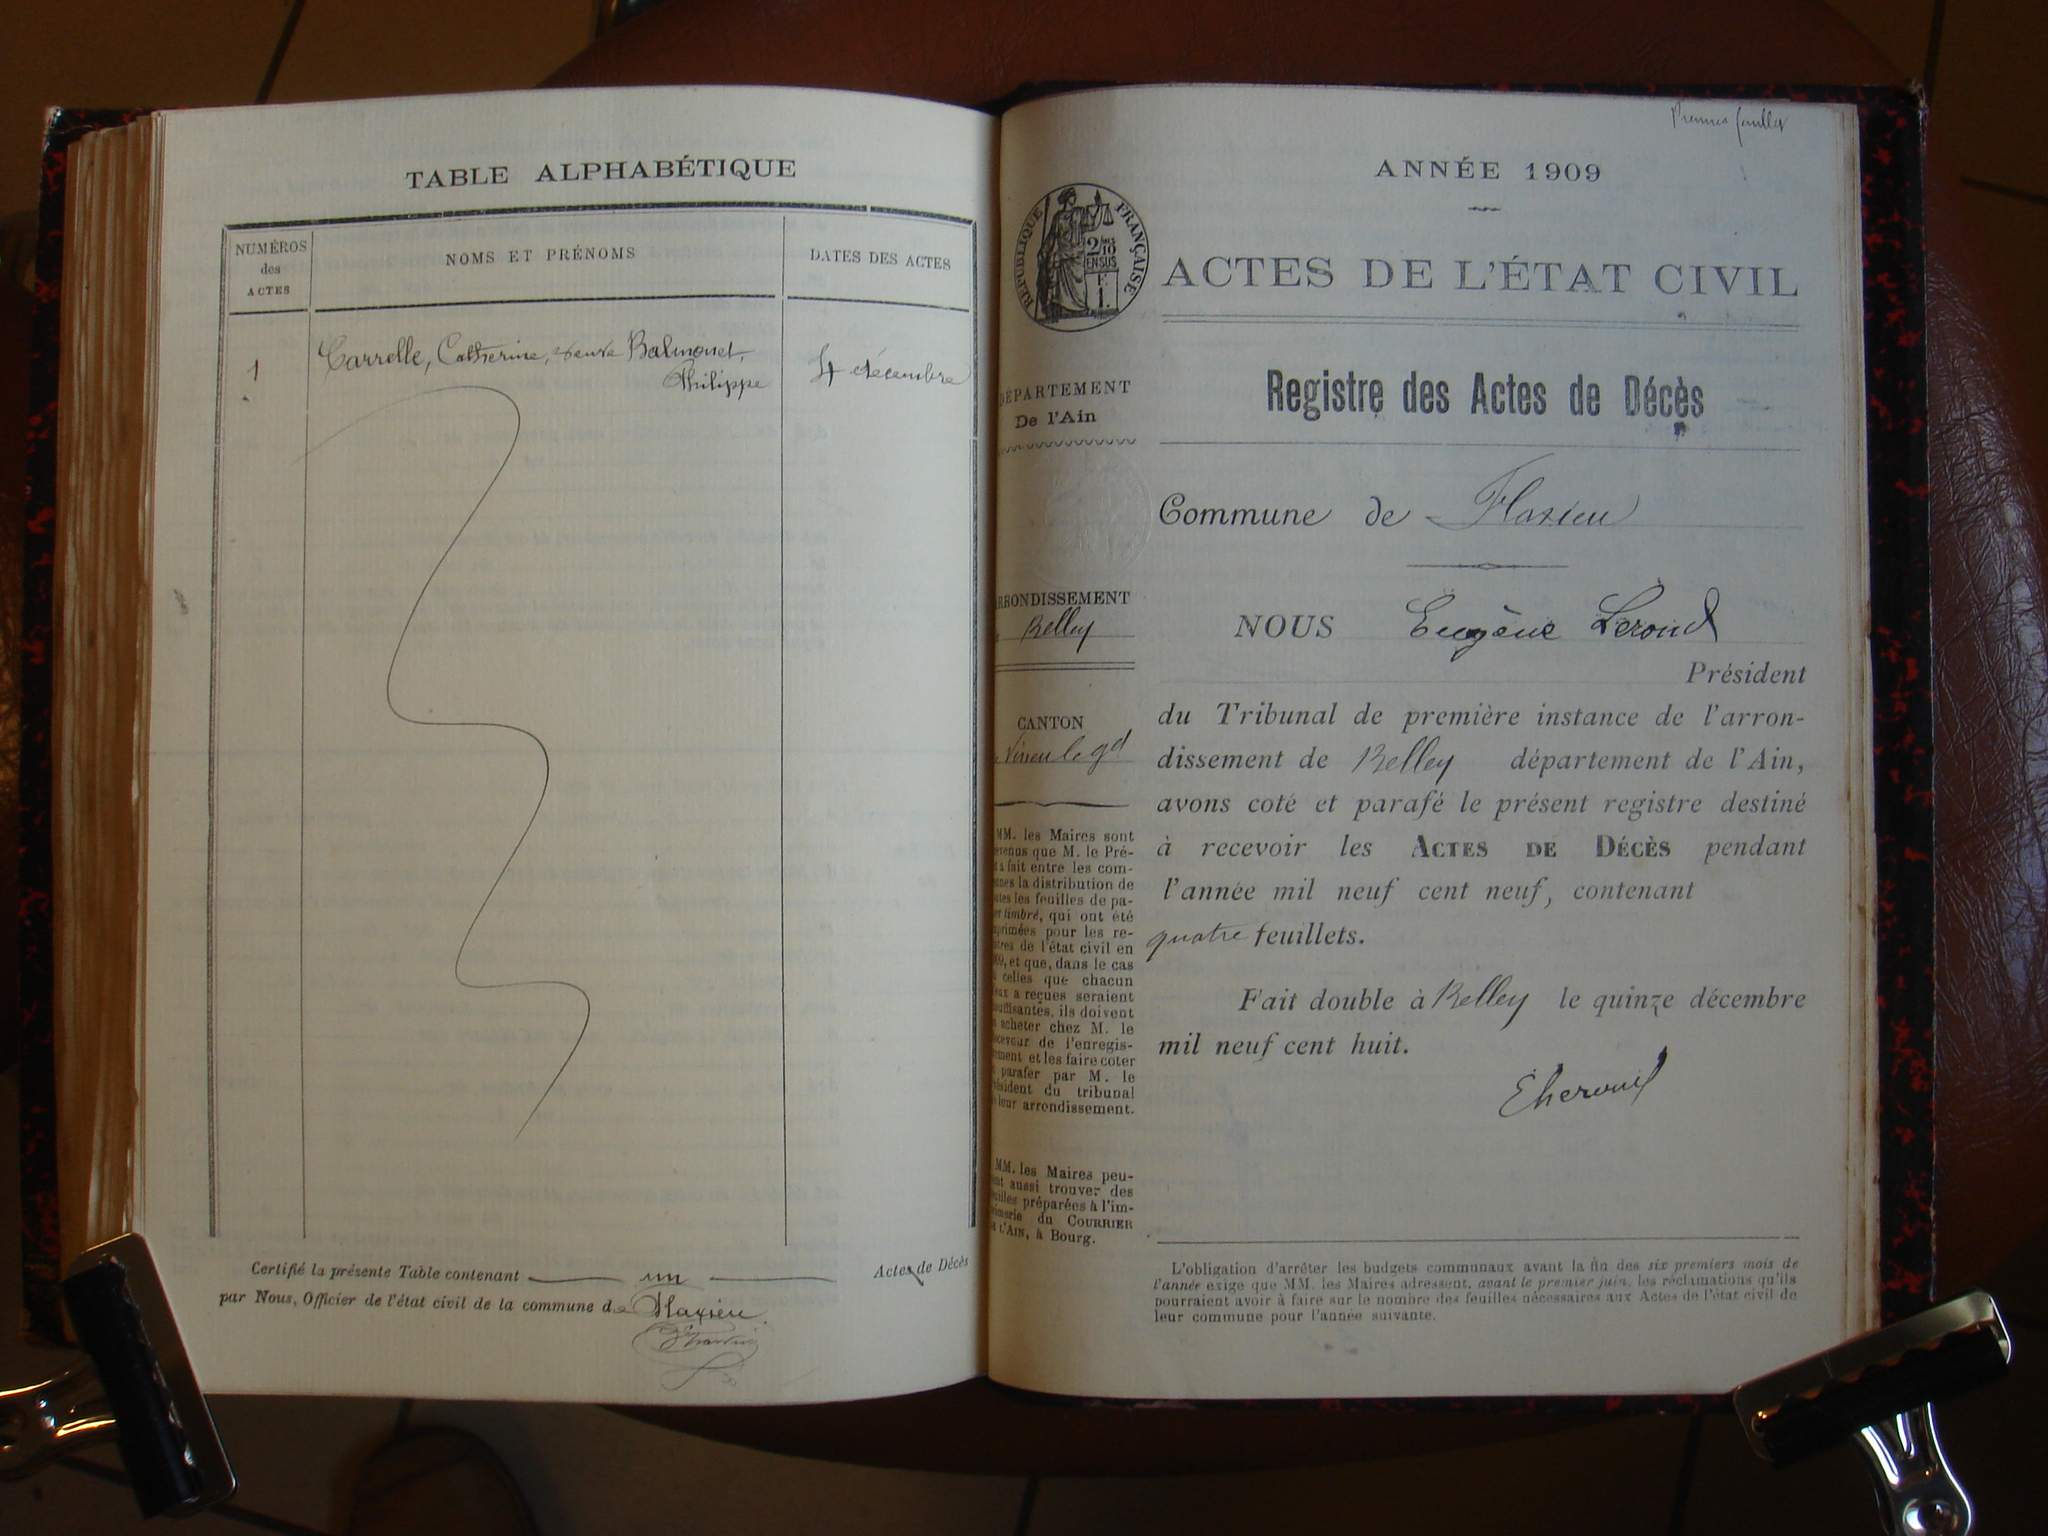 TABLE ALPHABÉTIQUE
NUMÉROS
des
ACTES
NOMS ET PRÉNOMS
DATES DES ACTES
1
Carrelle, Catherine, veuve Balmonet,
Philippe
4 décembre
Certifié la présente Table contenant un Actes de Décès
par Nous, Officier de l'état civil de la commune de Flaxieu.
Premier feuillet
ANNÉE 1909
RÉPUBLIQUE FRANÇAISE
2/10
EN SUS
F.
1.
ACTES DE L'ÉTAT CIVIL
DÉPARTEMENT
De l'Ain
Registre des Actes de Décès
Commune de Flaxieu
RRONDISSEMENT
Belley
CANTON
Virieu le gd
MM. les Maires sont
evenus que M. le Pré-
t a fait entre les com-
unes la distribution de
utes les feuilles de pa-
er timbré, qui ont été
primées pour les re-
tres de l'état civil en
09, et que, dans le cas
celles que chacun
eux a reçues seraient
suffisantes, ils doivent
acheter chez M. le
ecevour de l'enregis-
ement et les faire coter
parafer par M. le
ésident du tribunal
leur arrondissement.
MM. les Maires peu-
ent aussi trouver des
uilles préparées à l'im-
rimerie du COURRIER
DE L'AIN, à Bourg.
NOUS Eugène Lerond
Président
du Tribunal de première instance de l'arron-
dissement de Belley département de l'Ain,
avons coté et parafé le présent registre destiné
à recevoir les ACTES DE DÉCÈS pendant
l'année mil neuf cent neuf, contenant
quatre feuillets.
Fait double à Belley le quinze décembre
mil neuf cent huit.
L'obligation d'arrêter les budgets communaux avant la fin des six premiers mois de
l'année exige que MM. les Maires adressent, avant le premier juin, les réclamations qu'ils
pourraient avoir à faire sur le nombre des feuilles nécessaires aux Actes de l'état civil de
leur commune pour l'année suivante.